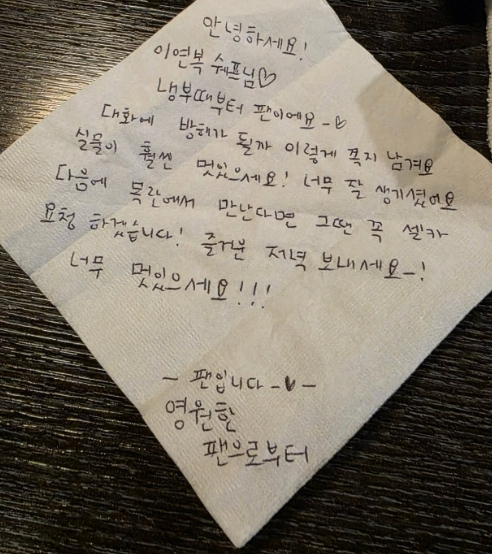 안녕하세요!
이연복 쉐프님♡
냉부때부터 팬이에요~♡
대화에 방해가 될까 이렇게 쪽지 남겨요
실물이 훨씬 멋있으세요! 너무 잘 생기셨어요
다음에 목란에서 만난다면 그땐 꼭 셀카
요청 하겠습니다! 즐거운 저녁 보내세요~!
너무 멋있으세요!!!
- 팬입니다 -♥-
영원한
팬으로부터